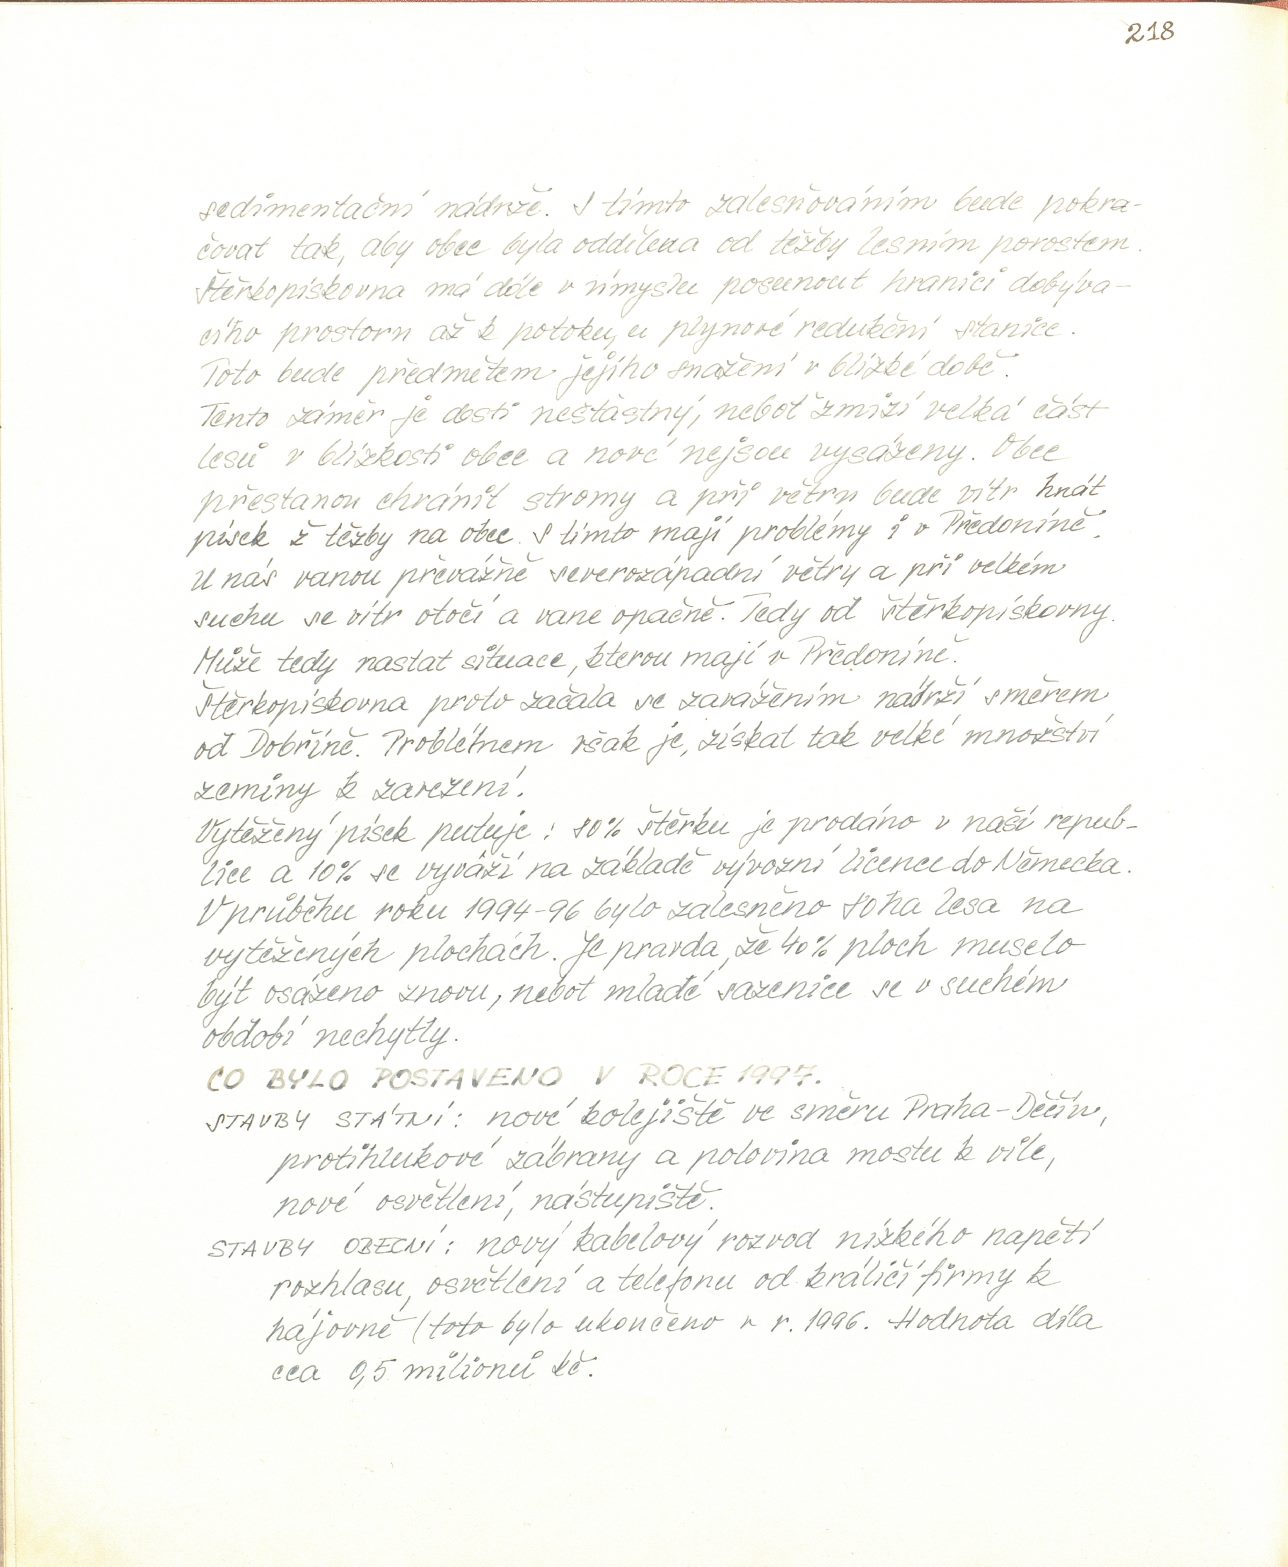 218
sedimentační nádrže. S tímto zalesňováním bude pokra-
čovat tak, aby obec byla oddělena od těžby lesním porostem.
Štěrkopískovna má dále v úmyslu posunout hranici dobýva-
cího prostoru až k potoku, u plynové redukční stanice.
Toto bude předmětem jejího snažení v blízké době.
Tento záměr je dosti nešťastný, neboť zmizí velká část
lesů v blízkosti obce a nové nejsou vysázeny. Obec
přestanou chránit stromy a při větru bude vítr hnát
písek z těžby na obec. S tímto mají problémy i v Předoníně.
U nás vanou převážně severozápadní větry a při velkém
suchu se vítr otočí a vane opačně. Tedy od štěrkopískovny.
Může tedy nastat situace, kterou mají v Předoníně.
Štěrkopískovna proto začala se zavážením nádrží směrem
od Dobříně. Problémem však je, získat tak velké množství
zeminy k zavezení.
Vytěžený písek putuje: 80% štěrku je prodáno v naší repub-
lice a 10% se vyváží na základě vývozní licence do Německa.
V průběhu roku 1994-96 bylo zalesněno 80ha lesa na
vytěžených plochách. Je pravda, že 40% ploch muselo
být osázeno znovu, neboť mladé sazenice se v suchém
období nechytly.
CO BYLO POSTAVENO V ROCE 1997.
STAVBY STÁTNÍ: nové kolejiště ve směru Praha-Děčín,
protihlukové zábrany a polovina mostu k vile,
nové osvětlení, nástupiště.
STAVBY OBECNÍ: nový kabelový rozvod nízkého napětí
rozhlasu, osvětlení a telefonu od králičí firmy k
hájovně (toto bylo ukončeno v r. 1996. Hodnota díla
cca 0,5 milionů kč.